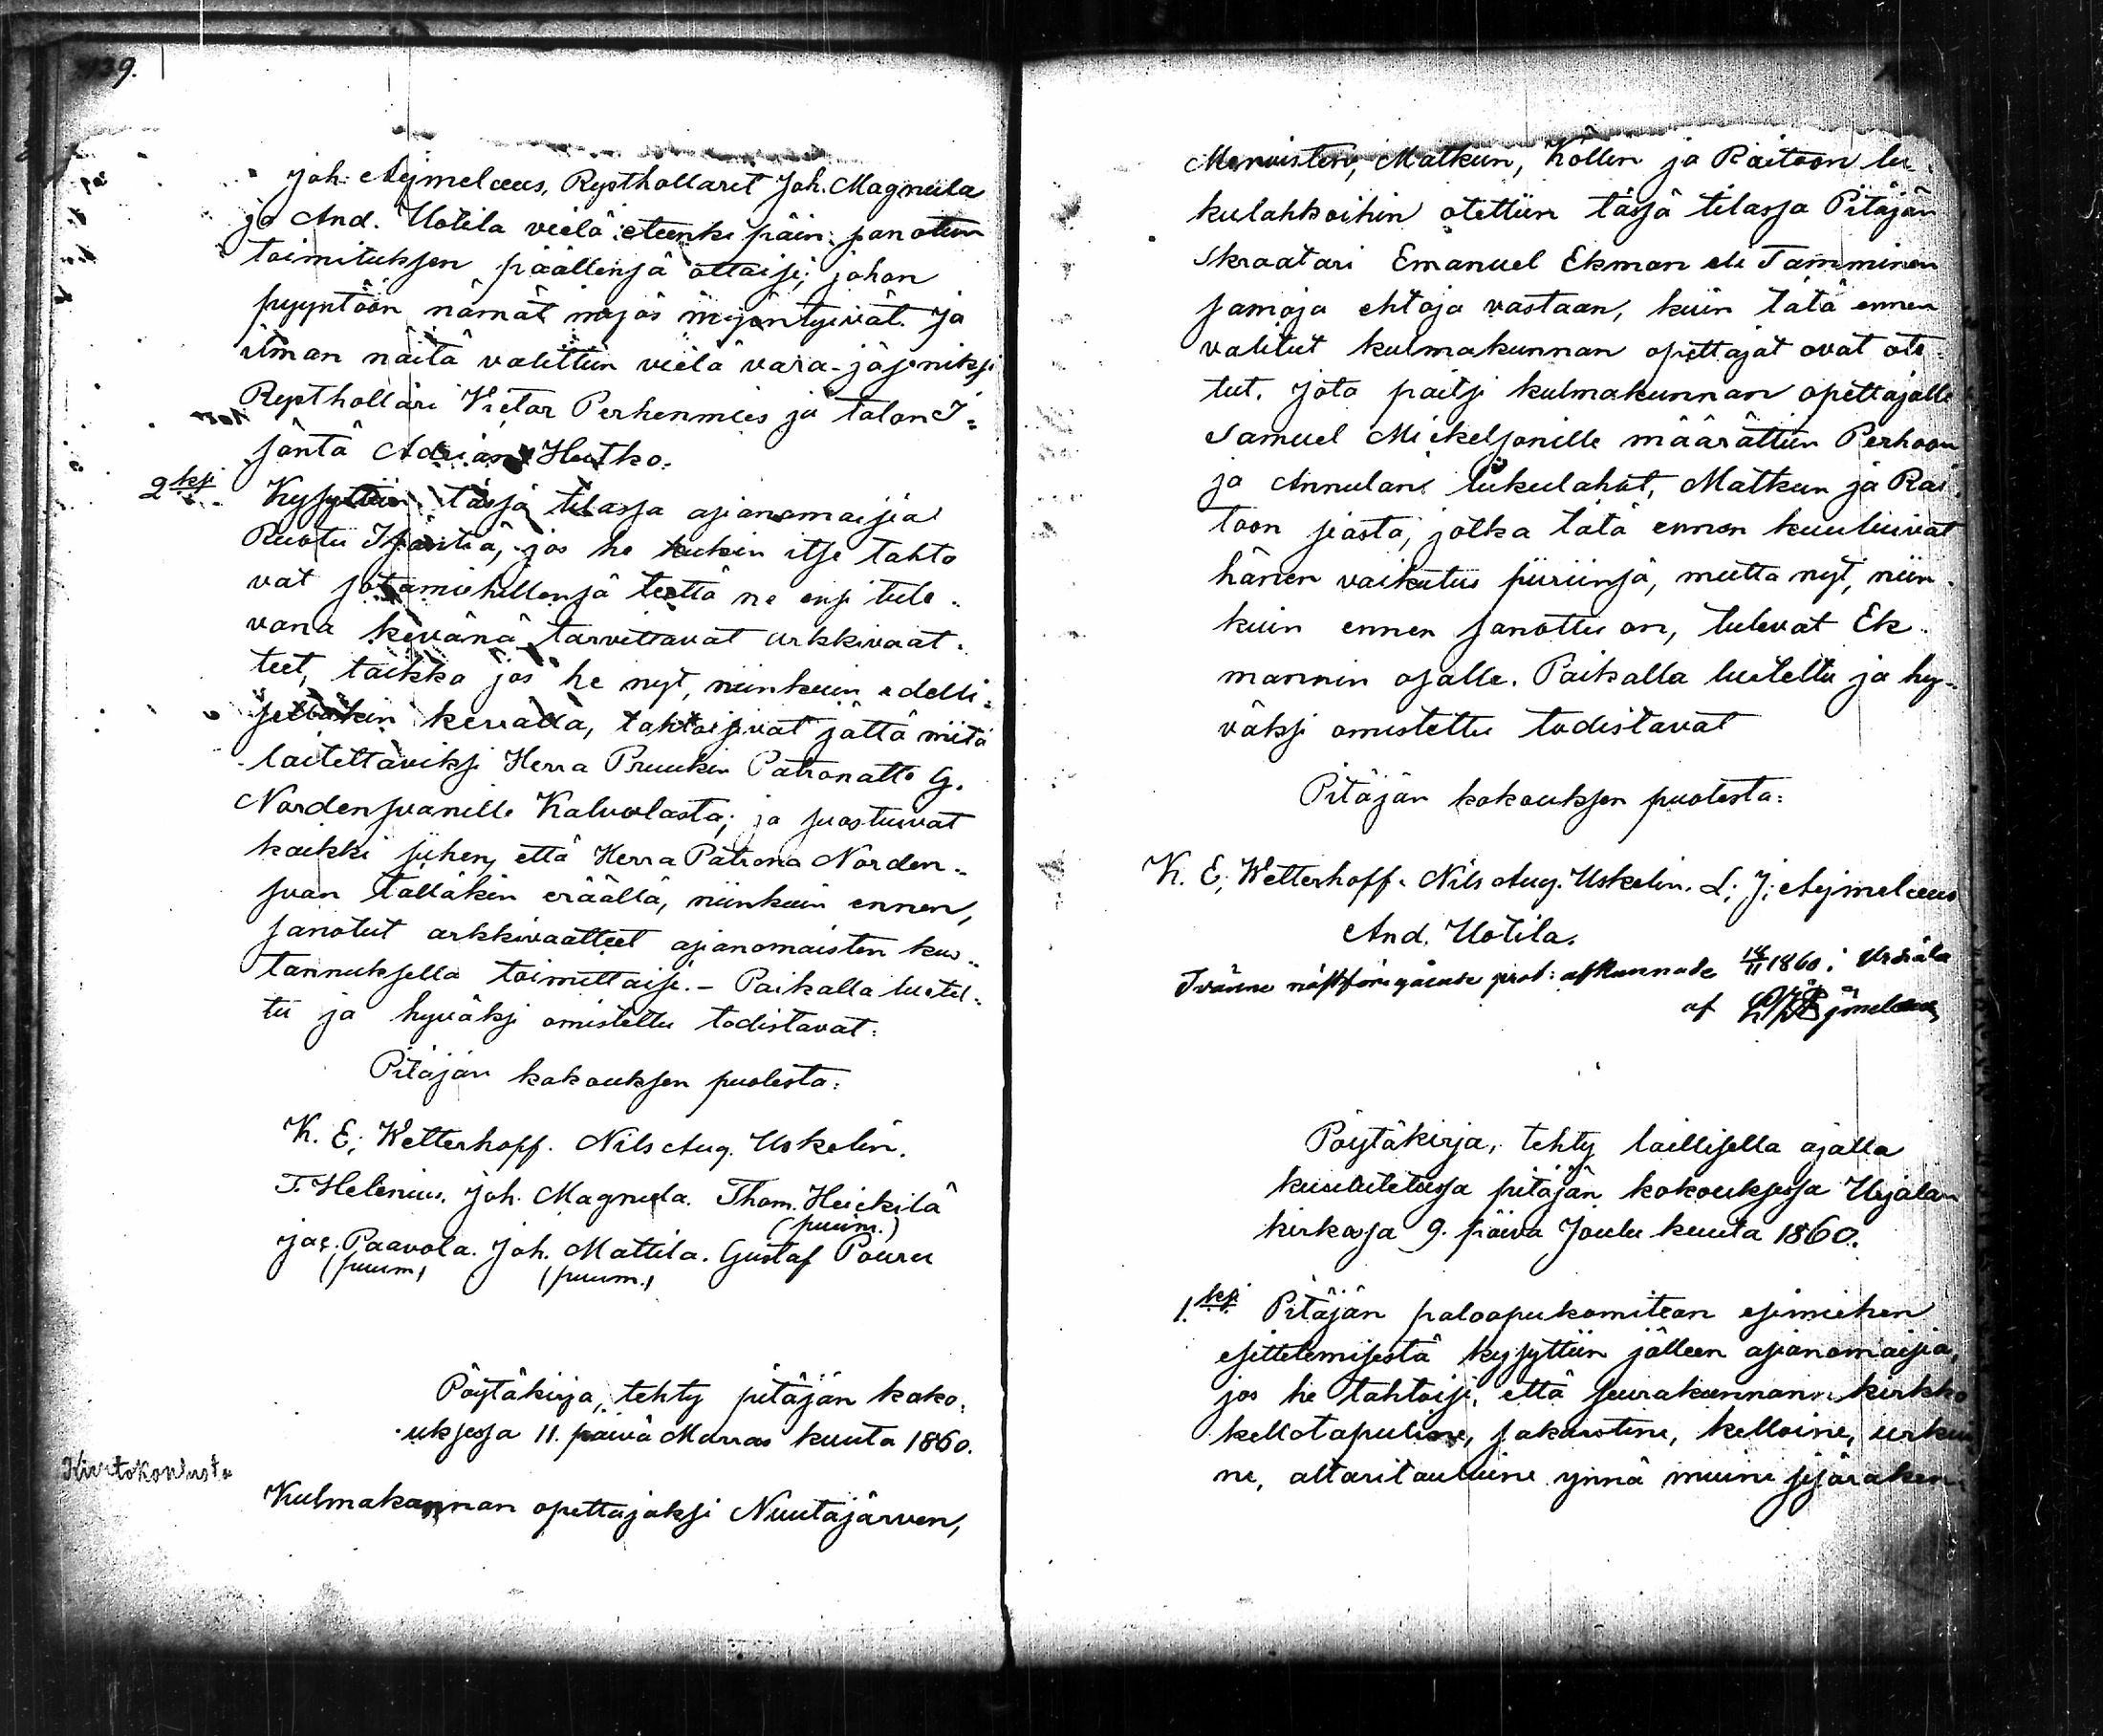 139.
Joh. Aejmelaeus, Rysthollarit Joh. Magnula
ja And. Uotila vielä eteenki päin sanotun
toimituksen päällensä ottaisi, johon
pyyntöön nämät myös myöntyivät. Ja
ilman näitä valittiin vielä vara-jäseniksi
Rysthollari Victor Perhenmies ja talon I-
säntä Adrian Hutko.
2ksi Kysyttiin tässä tilassa asianomaisia
Ruotu Isäntiä, jos he kukin itse tahto
vat sotamiehillensä teettä ne ensi tule-
vana kevänä tarvittavat arkkivaat-
teet, taikka jos he nyt, niinkuin edelli-
selläkin kerralla, tahtoisivat jättä niitä
laitettaviksi Herra Pruukin Patronatte G.
Nordensvanille Kalvolasta; ja suostuivat
kaikki siihen, että Herra Patrona Norden-
svan tälläkin eräällä, niinkuin ennen,
sanotut arkkivaatteet asianomaisten kus-
tannuksella toimittaisi. - Paikalla luetel-
tu ja hyväksi omistettu todistavat:
Pitäjän kokouksen puolesta:
K. E. Wetterhoff. Nils Aug. Uskelin.
T. Helenius. Joh. Magnula. Thom. Heickilä
(puum.)
Jac. Paavola. Joh. Mattila. Gustaf Pouru
(puum) (puum.)
Pöytäkirja, tehty pitäjän koko-
uksessa 11. päivä Marras kuuta 1860.
Kiertokoulusta
Kulmakunnan opettajaksi Nuutajärven,
Menoisten, Matkun, Köllin ja Raitoon lu-
kulahkoihin otettiin tässä tilassa Pitäjän
Skraatari Emanuel Ekman eli Tamminen
samoja ehtoja vastaan, kuin tätä ennen
valitut kulmakunnan opettajat ovat ote-
tut. Jota paitsi kulmakunnan opettajalle
Samuel Mickelsonille määrättiin Perhoon
ja Annulan lukulahot, Matkun ja Rai-
toon siasta, jotka tätä ennen kuuluivat
hänen vaikutus piiriinsä, mutta nyt, niin
kuin ennen sanottu on, tulevat Ek-
mannin osalle. Paikalla lueteltu ja hy-
väksi omistettu todistavat
Pitäjän kokouksen puolesta:
K. E. Wetterhoff. Nils Aug. Uskelin. L. J. Aejmelaeus
And. Uotila.
Tvänne nästföregående prot: afkunnade 18/11 1860 i Urdiala
af
Pöytäkirja, tehty laillisella ajalla
kuulutetussa pitäjän kokouksessa Urjalan
kirkossa 9. päivä Joulu kuuta 1860.
1.ksi Pitäjän paloapukomitean esimiehen
esittelemisestä kysyttiin jälleen asianomaisia,
jos he tahtoisi, että seurakunnan kirkko
kellotapuline, sakaristine, kelloine, urkui
ne, altaritauluine ynnä muine sisäraken